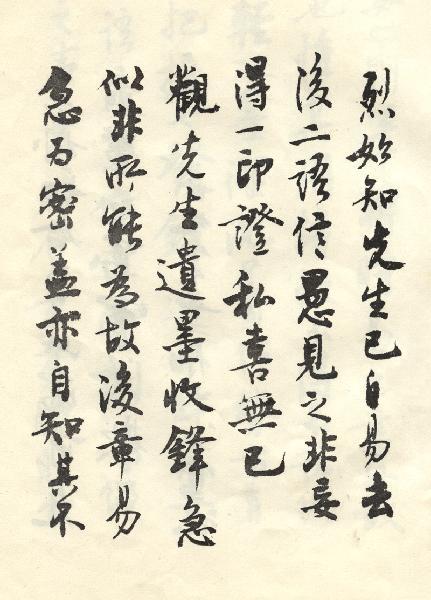 烈始知先生已自易去
後二語信愚見之非妄
得一印證私喜無已
觀先生遺墨收鋒急
似非所能為故後章易
急为密蓋亦自知其不